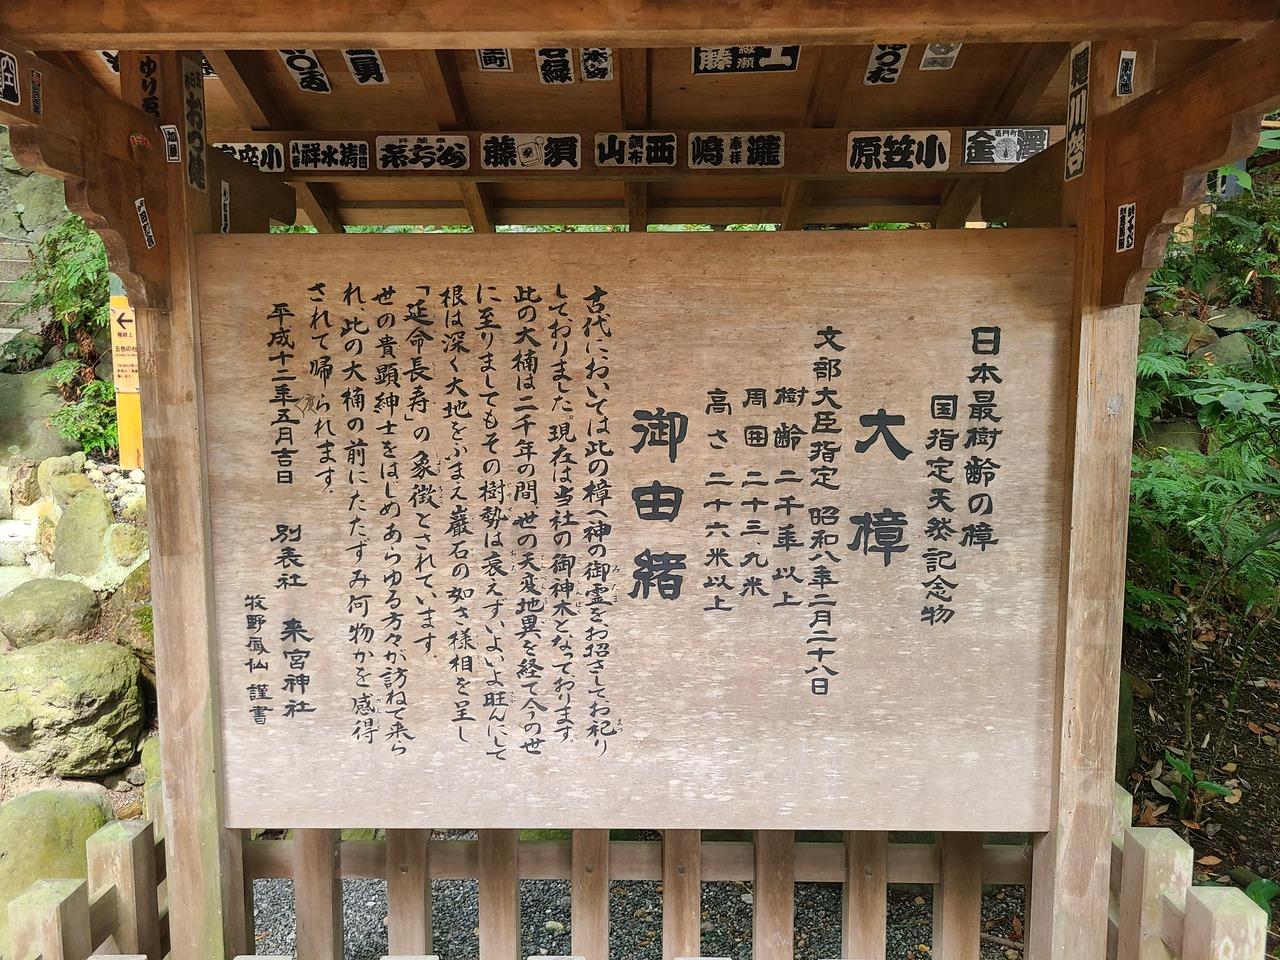 日本最樹齢の樟
国指定天然記念物
大樟
文部大臣指定 昭和八年二月二十八日
樹齢 二千年以上
周囲 二十三、九米
高さ 二十六米以上
御由緒
古代においては此の樟へ神の御霊をお招きしてお祀り
しておりました、現在は当社の御神木となっております。
此の大楠は二千年の間、世の天変地異を経て今の世
に至りましてもその樹勢は衰えず、いよいよ旺んにして
根は深く大地をふまえ巌石の如き様相を呈し
「延命長寿」の象徴とされています。
世の貴顕紳士をはじめあらゆる方々が訪ねて来ら
れ、此の大楠の前にたたずみ何物かを感得
されて帰られます。
平成十二年五月吉日
別表社 来宮神社
牧野鳳仙 謹書
小笠原
瀧嶋
西山
調布
須藤
清水祥